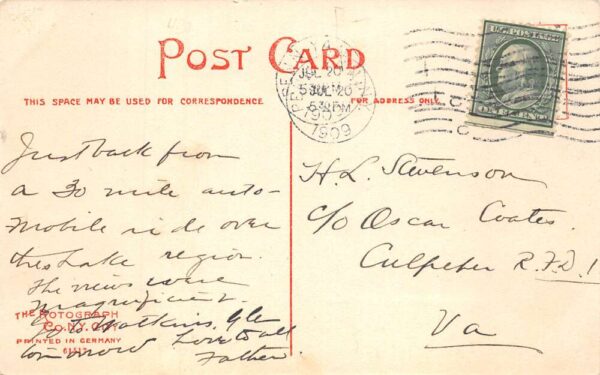 POST CARD
THIS SPACE MAY BE USED FOR CORRESPONDENCE
FOR ADDRESS ONLY
JUL 20
5 30 PM
1909
U.S. POSTAGE
ONE CENT
Just back from
a 30 mile auto-
mobile ride over
this Lake region.
The views were
magnificent.
Go to Watkins Glen
tomorrow Love to all
Father
THE ROTOGRAPH
CO. N.Y. CITY
PRINTED IN GERMANY
H. L. Stevenson
c/o Oscar Coates
Culpeper R.F.D. 1
Va